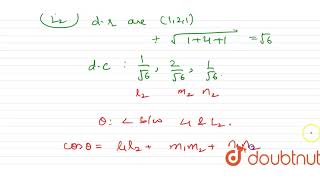 L₂ d·r are (1,2,1)
+ √1+4+1 = √6
d·c : 1/√6 , 2/√6 , 1/√6.
l₂ m₂ n₂
θ : < b/w L₁ & L₂.
cosθ = l₁l₂ + m₁m₂ + n₁n₂
doubtnut